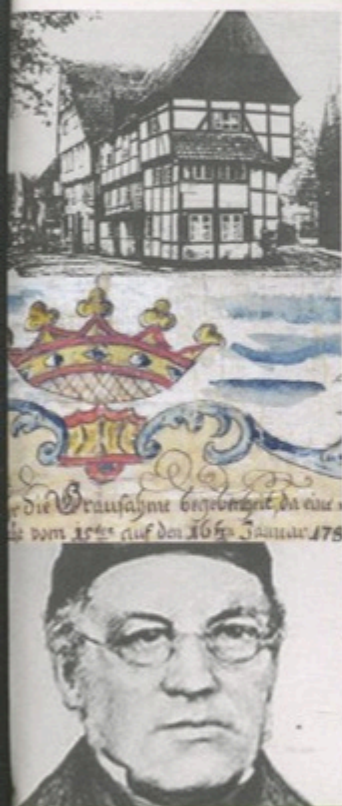 die Grausahme begebenheit, da eine
vom 15ten auf den 16ten Januar 178